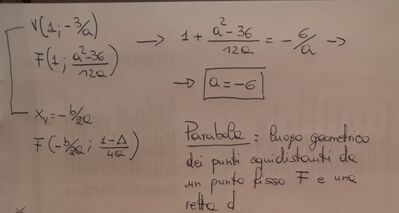 V(1; -3/a) → 1 + (a²-36)/12a = -6/a →
F(1; (a²-36)/12a)
→ a = -6
Xᵥ = -b/2a
F(-b/2a; (1-Δ)/4a)
Parabola : luogo geometrico
dei punti equidistanti da
un punto fisso F e una
retta d